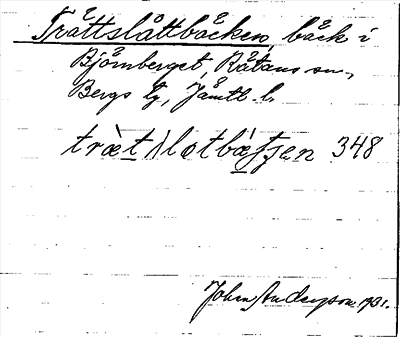 Trättslåttbäcken, bäck i
Björnberget, Rätans sn.,
Bergs tg, Jämtl. l.
348
John Anderson 1931.